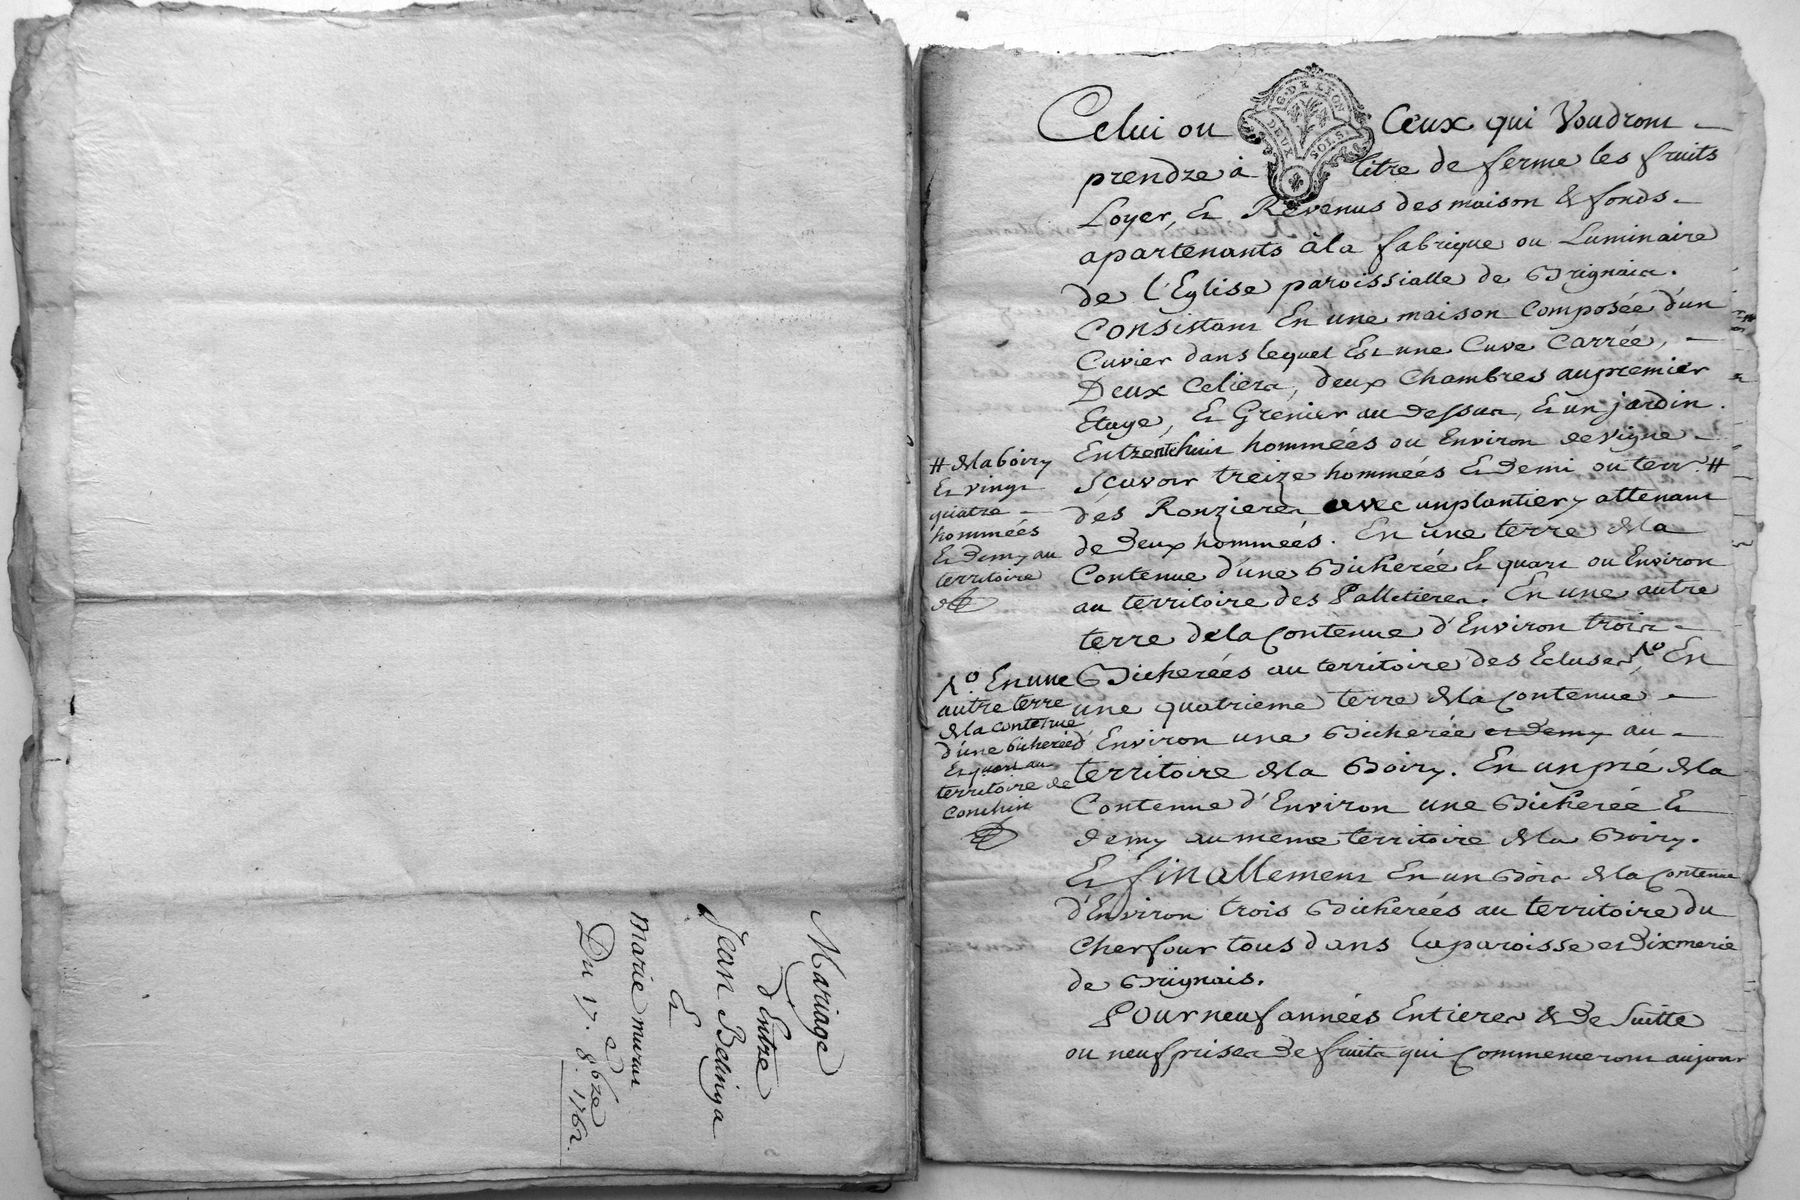 Mariage
d'Entre
Jean Bedinga
Et
Marie murat
Du 17. e 8bre 1762.
G. DE LYON
DEUX SOLS.
Celui ou Ceux qui Voudront
prendre à titre de ferme les fruits
Loyer, Et Revenus des maison & fonds
apartenants à la fabrique ou Luminaire
de l'Eglise paroissialle de Brignais.
Consistant En une maison Composée d'un
Cuvier dans lequel Est une Cuve Carrée,
Deux Celiers, deux Chambres au premier
Etage, Et Grenier au dessus, Et un jardin.
En trente huit hommées ou Environ de vigne
Sçavoir treize hommeés Et Demi ou terr. #
des Ronzieres avec un plantiery attenant
de Deux hommeés. En une terre de la
Contenue d'une Bicherée Et quart ou Environ
au territoire des Palletieres. En une autre
terre de la Contenue d'Environ trois
Bicherées au territoire des Ecluses, No En
une quatrieme terre de la Contenue
d'Environ une Bicherée et Demy au
territoire de la Boiry. En un pré de la
Contenue d'Environ une Bicherée Et
demy au meme territoire de la Boiry.
Et finallement En un Bois de la Contenue
d'Environ trois Bicherées au territoire du
Cherfour tous dans la paroisse et Dixmerie
de Brignais.
Pour neuf années Entieres & De Suitte
ou neuf prises De fruits qui Commenceront aujour
# de la boiry
Et vingt
quatre
hommeés
Et Demy au
territoire
No En une
autre terre
de la Contenue
d'une bicherée
Et quart au
territoire de
Conchin